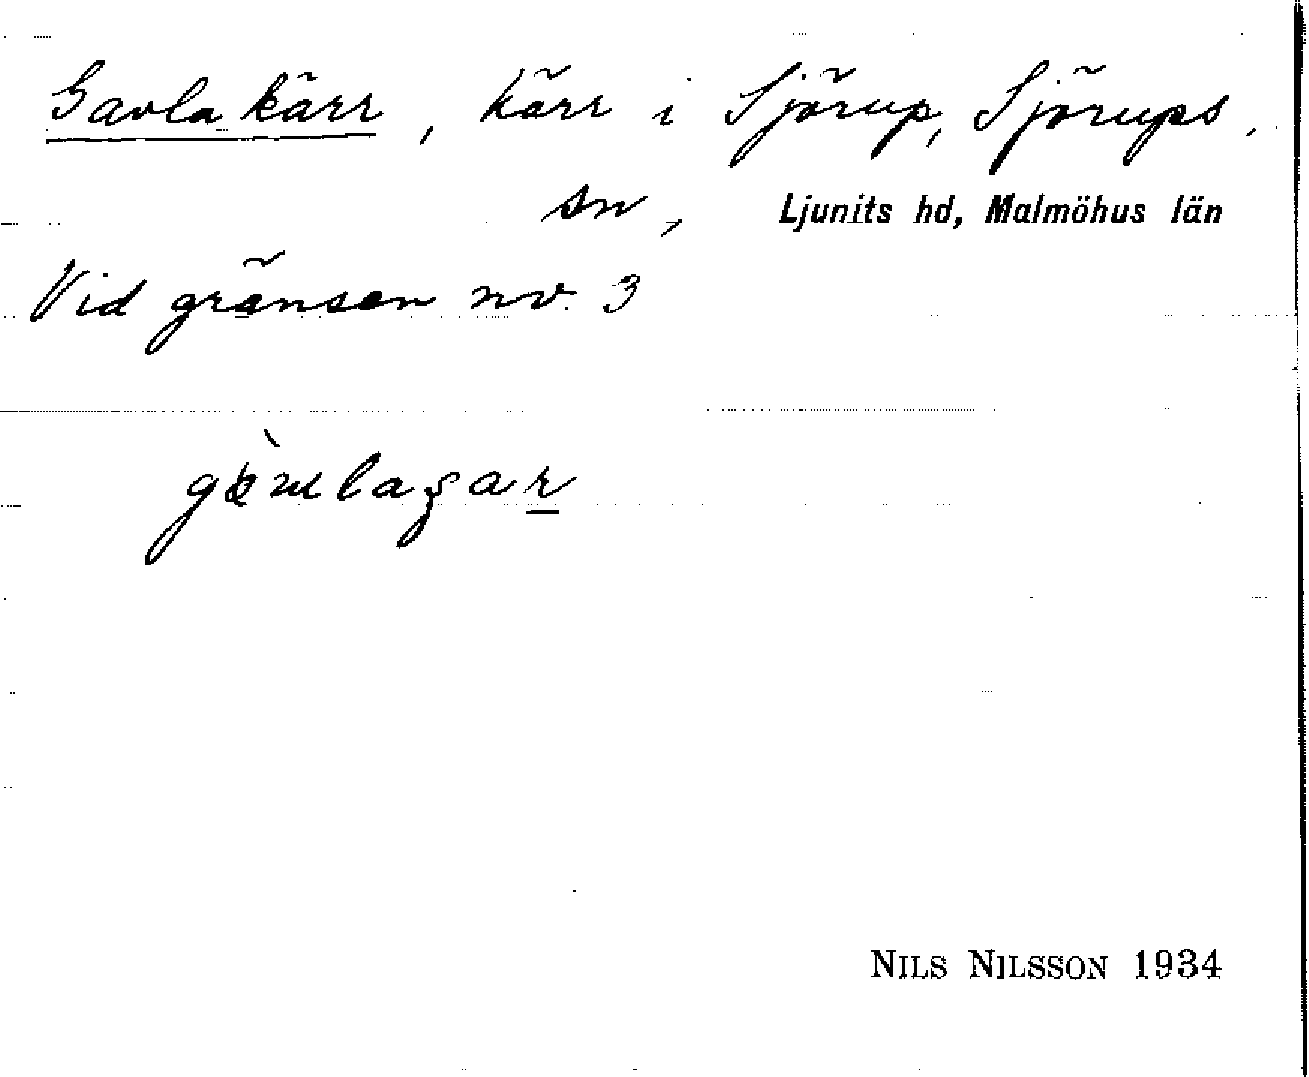 Gavlakärr, kärr i Sjörup, Sjörups
sn, Ljunits hd, Malmöhus län
Vid gränsen nv. 3
NILS NILSSON 1934